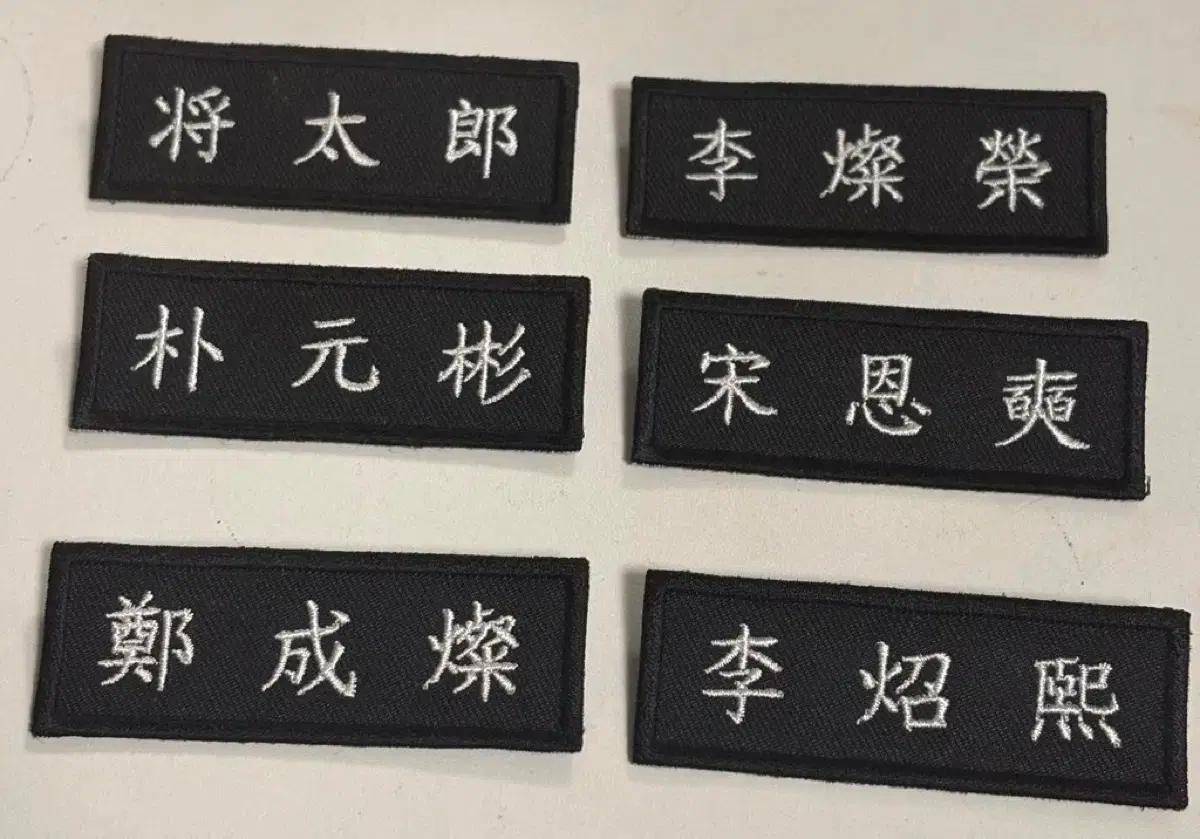 将太郎
李燦榮
朴元彬
宋恩奭
鄭成燦
李炤熙